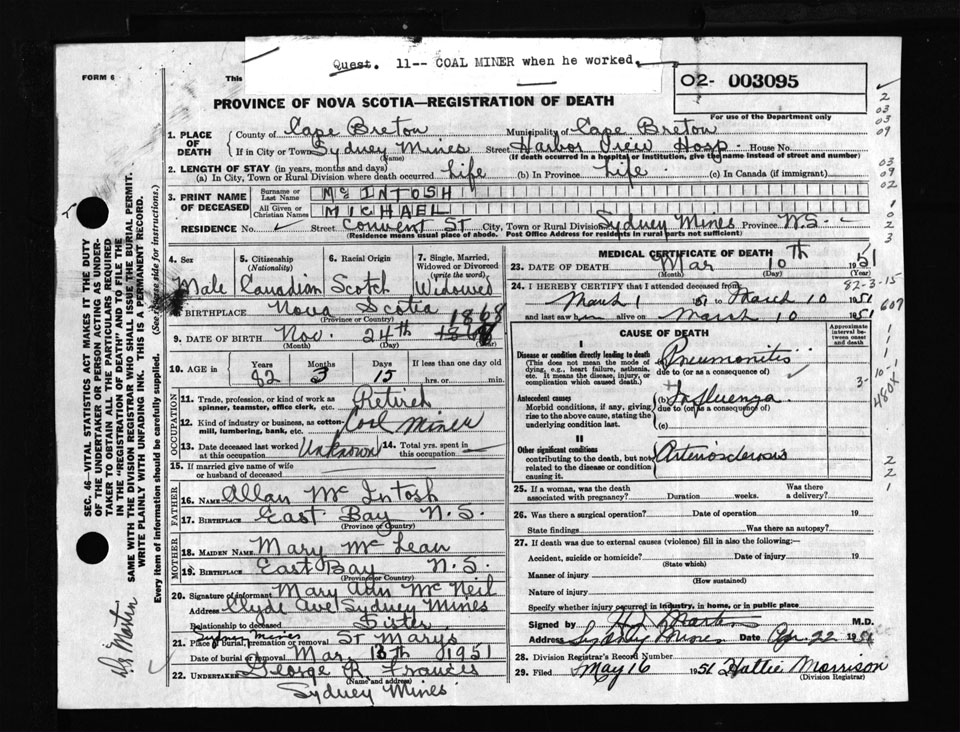 Quest. 11-- COAL MINER when he worked.
FORM 6
This
O2- 003095
For use of the Department only
PROVINCE OF NOVA SCOTIA—REGISTRATION OF DEATH
1. PLACE OF DEATH
County of Cape Breton Municipality of Cape Breton
If in City or Town Sydney Mines Street Harbor View Hosp. House No.
(Name) (If death occurred in a hospital or institution, give the name instead of street and number)
2. LENGTH OF STAY (in years, months and days)
(a) In City, Town or Rural Division where death occurred Life (b) In Province Life (c) In Canada (if immigrant)
3. PRINT NAME OF DECEASED
Surname or Last Name McINTOSH
All Given or Christian Names MICHAEL
RESIDENCE No. Street Convent St City, Town or Rural Division Sydney Mines Province N.S.
(Residence means usual place of abode. Post Office Address for residents in rural parts not sufficient)
4. Sex Male
5. Citizenship (Nationality) Canadian
6. Racial Origin Scotch
7. Single, Married, Widowed or Divorced (write the word) Widowed
8. BIRTHPLACE Nova Scotia
(Province or Country)
1868
9. DATE OF BIRTH Nov. 24th
(Month) (Day) (Year)
10. AGE in Years Months Days If less than one day old
82 3 15 hrs. or min.
OCCUPATION
11. Trade, profession, or kind of work as spinner, teamster, office clerk, etc. Retired
12. Kind of industry or business, as cotton-mill, lumbering, bank, etc. Coal Miner
13. Date deceased last worked at this occupation Unknown 14. Total yrs. spent in this occupation
15. If married give name of wife or husband of deceased
FATHER
16. NAME Allan McIntosh
17. BIRTHPLACE East Bay N.S.
(Province or Country)
MOTHER
18. MAIDEN NAME Mary McLean
19. BIRTHPLACE East Bay N.S.
(Province or Country)
20. Signature of informant Mary Ann McNeil
Address Clyde Ave Sydney Mines
Relationship to deceased Sister
Sydney Mines
21. Place of burial, cremation or removal St Marys
Date of burial or removal Mar 13th 1951
22. UNDERTAKER George R. Francis
(Name and address)
Sydney Mines
MEDICAL CERTIFICATE OF DEATH
23. DATE OF DEATH Mar 10th 1951
(Month) (Day) (Year)
82-3-15
24. I HEREBY CERTIFY that I attended deceased from:
March 1 1951 to March 10 1951
and last saw him alive on March 10 1951
CAUSE OF DEATH
Approximate interval between onset and death
I
Disease or condition directly leading to death (a) Pneumonitis
(This does not mean the mode of dying, e.g., heart failure, asthenia, etc. It means the disease, injury, or complication which caused death.)
due to (or as a consequence of)
Antecedent causes (b) Influenza
Morbid conditions, if any, giving rise to the above cause, stating the underlying condition last.
due to (or as a consequence of)
(c)
II
Other significant conditions Arteriosclerosis
contributing to the death, but not related to the disease or condition causing it.
25. If a woman, was the death associated with pregnancy? Duration weeks. Was there a delivery?
26. Was there a surgical operation? Date of operation 19
State findings Was there an autopsy?
27. If death was due to external causes (violence) fill in also the following:
Accident, suicide or homicide? Date of injury 19
(State which)
Manner of injury
(How sustained)
Nature of injury
Specify whether injury occurred in industry, in home, or in public place
Signed by Martin M.D.
Address Sydney Mines Date Apr. 22 1951
28. Division Registrar's Record Number
29. Filed May 16 1951 Hattie Morrison
(Division Registrar)
SEC. 46—VITAL STATISTICS ACT MAKES IT THE DUTY
OF THE UNDERTAKER OR PERSON ACTING AS UNDERTAKER
TO OBTAIN ALL THE PARTICULARS REQUIRED
IN THE "REGISTRATION OF DEATH" AND TO FILE THE
SAME WITH THE DIVISION REGISTRAR WHO SHALL ISSUE THE BURIAL PERMIT.
WRITE PLAINLY WITH UNFADING INK. THIS IS A PERMANENT RECORD.
Every item of information should be carefully supplied. (See reverse side for instructions.)
Martin
2
03
03
09
03
09
02
1
0
2
3
609
480X
2
2
1